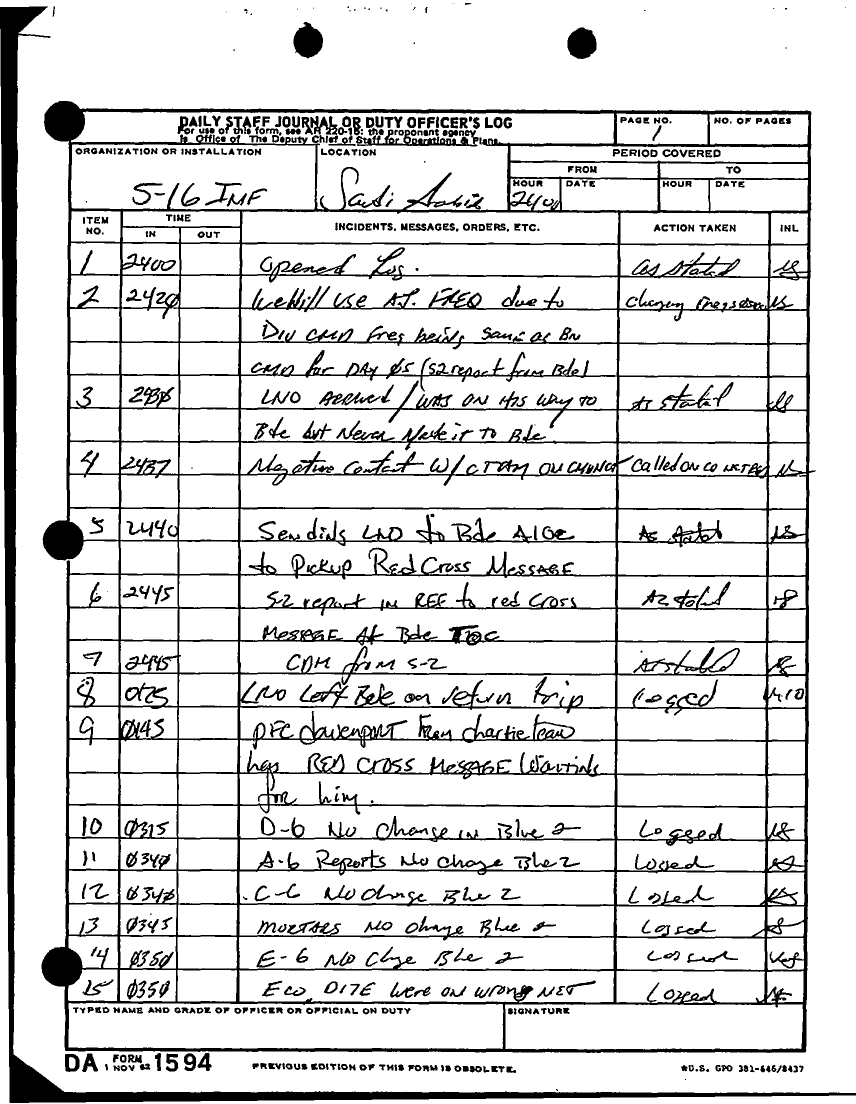 DAILY STAFF JOURNAL OR DUTY OFFICER'S LOG
For use of this form, see AR 220-15; the proponent agency
is Office of The Deputy Chief of Staff for Operations & Plans.
PAGE NO.
1
NO. OF PAGES
ORGANIZATION OR INSTALLATION
5-16 INF
LOCATION
Saudi
PERIOD COVERED
FROM
TO
HOUR
2400
DATE
HOUR
DATE
ITEM NO.
TIME
IN
OUT
INCIDENTS, MESSAGES, ORDERS, ETC.
ACTION TAKEN
INL
1 2400 Opened Log. As stated
2 242Ø We will use A.J. FREQ due to
Div CMD Freq being Same as Bn
CMD for DAY Ø5 (S2 report from Bde)
3 LNO Arrived / WAS ON His WAY TO As stated
Bde but Never Made it To Bde.
4 2437 Negative Contact W/ Called on CO
5 2440 Sending LNO to Bde As stated
to Pickup Red Cross Message
6 2445 S-2 report in REF to red Cross As stated
Message At Bde TOC
7 2445 from S-2 As stated
8 0125 LNO Left Bde on return trip Logged
9 Ø145 PFC davenport From charlie team
has RED CROSS MESSAGE Waiting
for him.
10 Ø315 D-6 No Change in Blue 2 Logged
11 Ø34Ø A-6 Reports No Change Blue 2 Logged
12 Ø34Ø C-6 No Change Blue 2 Logged
13 Ø345 MORTARS No Change Blue 2 Logged
14 Ø35Ø E-6 No Chge Blue 2 Logged
15 Ø35Ø E co were on wrong NET Logged
TYPED NAME AND GRADE OF OFFICER OR OFFICIAL ON DUTY
SIGNATURE
DA FORM 1 NOV 62 1594
PREVIOUS EDITION OF THIS FORM IS OBSOLETE.
*U.S. GPO 381-646/8437